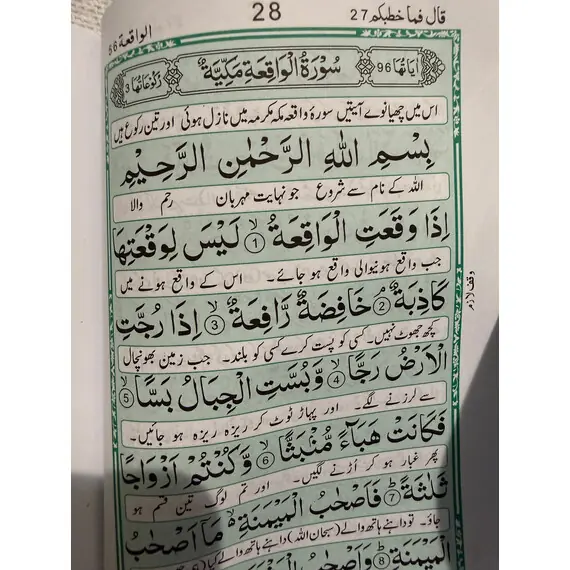 الواقعة ٥٦
28
قال فما خطبكم ٢٧
اٰيَاتُهَا ٩٦
سُوْرَةُ الْوَاقِعَةِ مَكِّيَّةٌ
رُكُوْعَاتُهَا ٣
اس میں چھیانوے آیتیں سورۂ واقعہ مکہ مکرمہ میں نازل ہوئی اور تین رکوع ہیں
بِسْمِ اللّٰهِ الرَّحْمٰنِ الرَّحِيْمِ
اللہ کے نام سے شروع جو نہایت مہربان رحم والا
اِذَا وَقَعَتِ الْوَاقِعَةُ ۙ﴿۱﴾ لَيْسَ لِوَقْعَتِهَا
جب واقع ہونیوالی واقع ہو جائے۔ اس کے واقع ہونے میں
كَاذِبَةٌ ۘ﴿۲﴾ خَافِضَةٌ رَّافِعَةٌ ۙ﴿۳﴾ اِذَا رُجَّتِ
کچھ جھوٹ نہیں۔ کسی کو پست کرے کسی کو بلند۔ جب زمین بھونچال
الْاَرْضُ رَجًّا ۙ﴿۴﴾ وَّبُسَّتِ الْجِبَالُ بَسًّا ۙ﴿۵﴾
سے لرزنے لگے۔ اور پہاڑ ٹوٹ کر ریزہ ریزہ ہو جائیں۔
فَكَانَتْ هَبَآءً مُّنْۢبَثًّا ۙ﴿۶﴾ وَّكُنْتُمْ اَزْوَاجًا
پھر غبار ہو کر اُڑنے لگیں۔ اور تم لوگ تین قسم ہو
ثَلٰثَةً ؕ﴿۷﴾ فَاَصْحٰبُ الْمَيْمَنَةِ ۙ مَاۤ اَصْحٰبُ
جاؤ۔ تو داہنے ہاتھ والے (سبحان اللہ) داہنے ہاتھ والے کیا
الْمَيْمَنَةِ ؕ﴿۸﴾ وَاَصْحٰبُ
وقف لازم